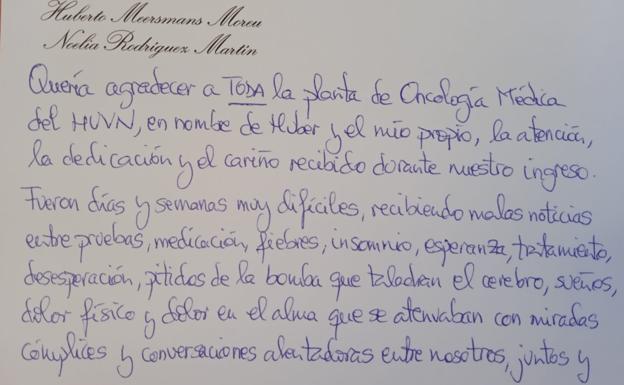 Huberto Meersmans Moreu
Noelia Rodriguez Martin
Quería agradecer a TODA la planta de Oncología Médica
del HUVN, en nombre de Huber y el mío propio, la atención,
la dedicación y el cariño recibido durante nuestro ingreso.
Fueron días y semanas muy difíciles, recibiendo malas noticias
entre pruebas, medicación, fiebres, insomnio, esperanza, tratamiento,
desesperación, pitidos de la bomba que taladran el cerebro, sueños,
dolor físico y dolor en el alma que se atenuaban con miradas
cómplices y conversaciones alentadoras entre nosotros, juntos y